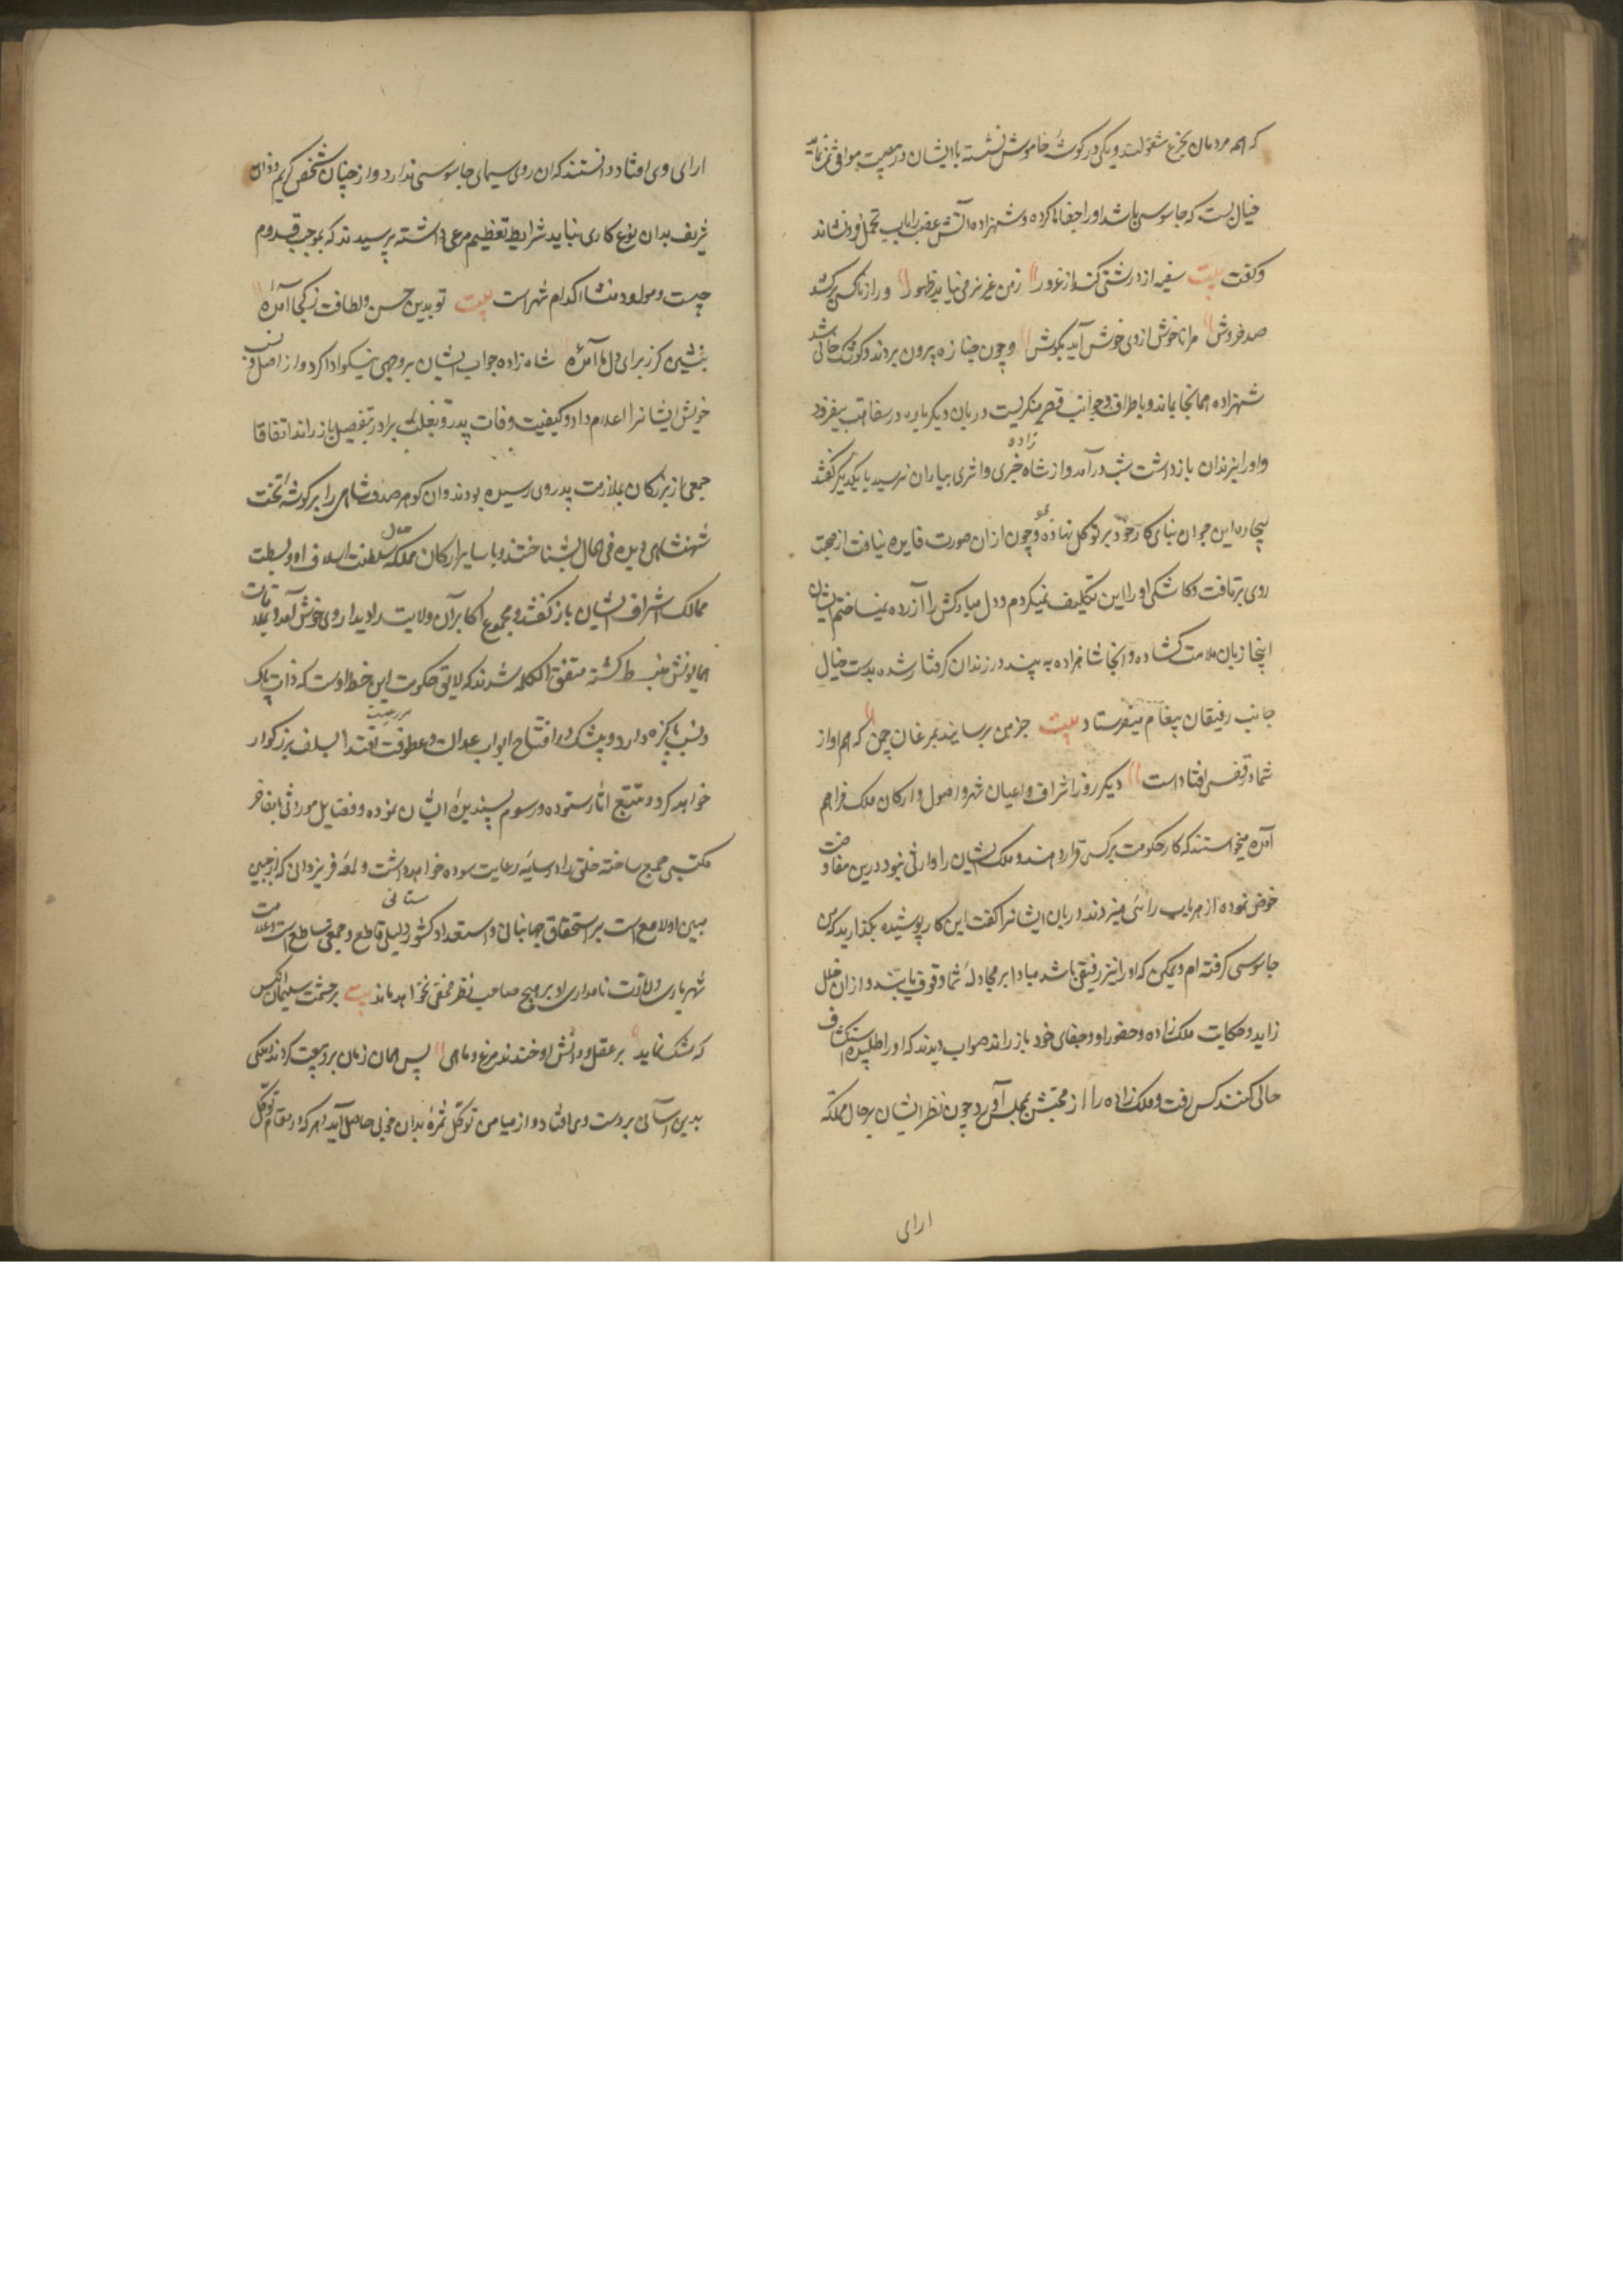 که همه مردمان بجزع مشغولند و یکی در گوشه خاموش نشسته با ایشان در مصیبت موافق نمی نماید
خیال بست که جاسوسی باشد او را جفاها کرده و شهزاده آتش غضب را بآب تحمل فرو نشاند
و گفت بیت سفیه ار درشتی کند از غرور زمن غیر نرمی نیاید ظهور ور از ناکسی برکشد
صد خروش مرا ناخوش از وی خوش آید بگوش و چون جنازه بیرون بردند و کوشک خالی شد
شهزاده همانجا بماند و باطراف و جوانب قصر مینگریست دربان دیگر باره در سفاهت بیفزود
و او را بزندان بازداشت شب درآمد و از شاه زاده خبری و اثری بیاران نرسید با یکدیگر گفتند
بیچاره این جوان بنای کار خود بر توکل نهاده بود چون ازان صورت فایده نیافت از صحبت
روی برتافت و کاشکی او را این تکلیف نمیکردم و دل مبارکش را آزرده نمیساختم ایشان
اینجا زبان ملامت گشاده و آنجا شاهزاده به بند در زندان گرفتار شده بدست خیال
جانب رفیقان پیغام میفرستاد بیت خبر من برسانید بمرغان چمن که هم آواز
شما در قفس افتادست دیگر روز اشراف و اعیان شهر و اصول و ارکان ملک فراهم
آمده میخواستند که کار حکومت بر کسی قرار دهند و ملک ایشان را وارثی نبود درین مفاوضت
خوض نموده از هر باب رائی میزدند دربان ایشانرا گفت این کار پوشیده بگذارید که من
جاسوسی گرفته ام و یمکن که او را نیز رفیقی باشد مبادا بر مجادله شما وقوف یابند و ازان خلل
زاید و حکایت ملک زاده و حضور او و جفای خود باز راند صواب دیدند که او را طلبیده استکشاف
حالی کنند کس رفت و ملک زاده را از محبس بمجلس آورد چون نظر ایشان بر جمال مملکت
ارای
ارای وی افتاد دانستند که آن روی سیمای جاسوسی ندارد و از چنان شخص کریم و ذات
شریف بدان نوع کاری نیاید شرایط تعظیم مرعی داشته پرسیدند که بموجب قدوم
چیست و مولد و منشا کدام شهر است بیت تو بدین حسن و لطافت ز کجا آمده
بنشین کز برای دل ما آمده شاه زاده جواب ایشان بر وجهی نیکو ادا کرد و از اصل و نسب
خویش ایشانرا اعلام داد و کیفیت وفات پدر و تغلب برادر بتفصیل باز راند اتفاقا
جمعی از بزرگان بملازمت پدر وی رسیده بودند و آن گوهر صدف شاهی را بر گوشه تخت
شهنشاهی دیده فی الحال بشناختند و با سایر ارکان مملکت حال سلطنت اسلاف او و بسطت
ممالک اشراف ایشان باز گفتند و مجموع اکابر آن ولایت را دیدار وی خوش آمد و بملاقات
همایونش منبسط گشته متفق الکلمه شدند که لایق حکومت این خطه اوست که ذات پاک
و نسب پاکیزه دارد و بیشک در افتتاح ابواب عدالت و عطوفت بر رعیت اقتدا بسلف بزرگوار
خواهد کرد و تتبع آثار ستوده و رسوم پسندیده ایشان نموده و فضایل موروثی با مفاخر
مکتسبی جمع ساخته خلق را در سایه رعایت آسوده خواهد داشت و لمعه فر یزدانی که از جبین
مبین او لامع است بر استحقاق جهانبانی و استعداد کشورستانی دلیلی قاطع و حجتی ساطع است و علامت
شهریاری و لیاقت نامداری او بر هیچ صاحب نظر مخفی نخواهد ماند بیت بر حشمت سلیمان آنکس
که شک نماید بر عقل و دانش او خندند مرغ و ماهی پس همان زمان برو بیعت کردند و ملکی
بدین آسانی بدست وی افتاد و از میامن توکل ثمره بدان خوبی حاصل آید هر که در مقام توکل